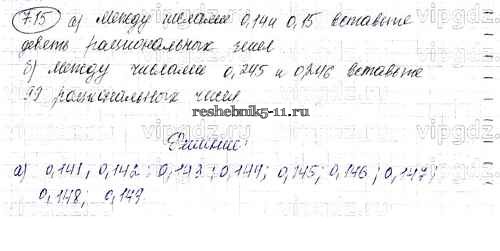 715 а) Между числами 0,14 и 0,15 вставьте
девять рациональных чисел
б) Между числами 0,245 и 0,246 вставьте
99 рациональных чисел
reshebnik5-11.ru
vipgdz
Решение:
а) 0,141, 0,142; 0,143; 0,144; 0,145; 0,146; 0,147;
0,148; 0,149